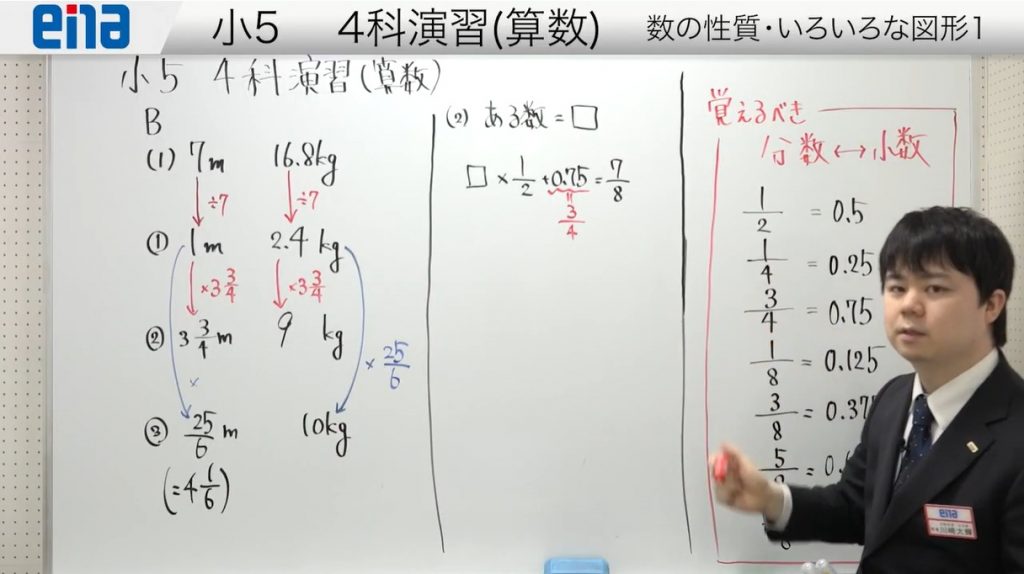 ena
小5 4科演習(算数) 数の性質・いろいろな図形1
小5 4科演習(算数)
B
(1) 7m 16.8kg
÷7 ÷7
① 1m 2.4kg
×3 3/4 ×3 3/4
② 3 3/4 m 9 kg
×
× 25/6
③ 25/6 m 10kg
(=4 1/6)
(2) ある数=□
□×1/2+0.75=7/8
3/4
覚えるべき
分数↔小数
1/2 = 0.5
1/4 = 0.25
3/4 = 0.75
1/8 = 0.125
3/8 = 0.37
5/8 = 0.
ena